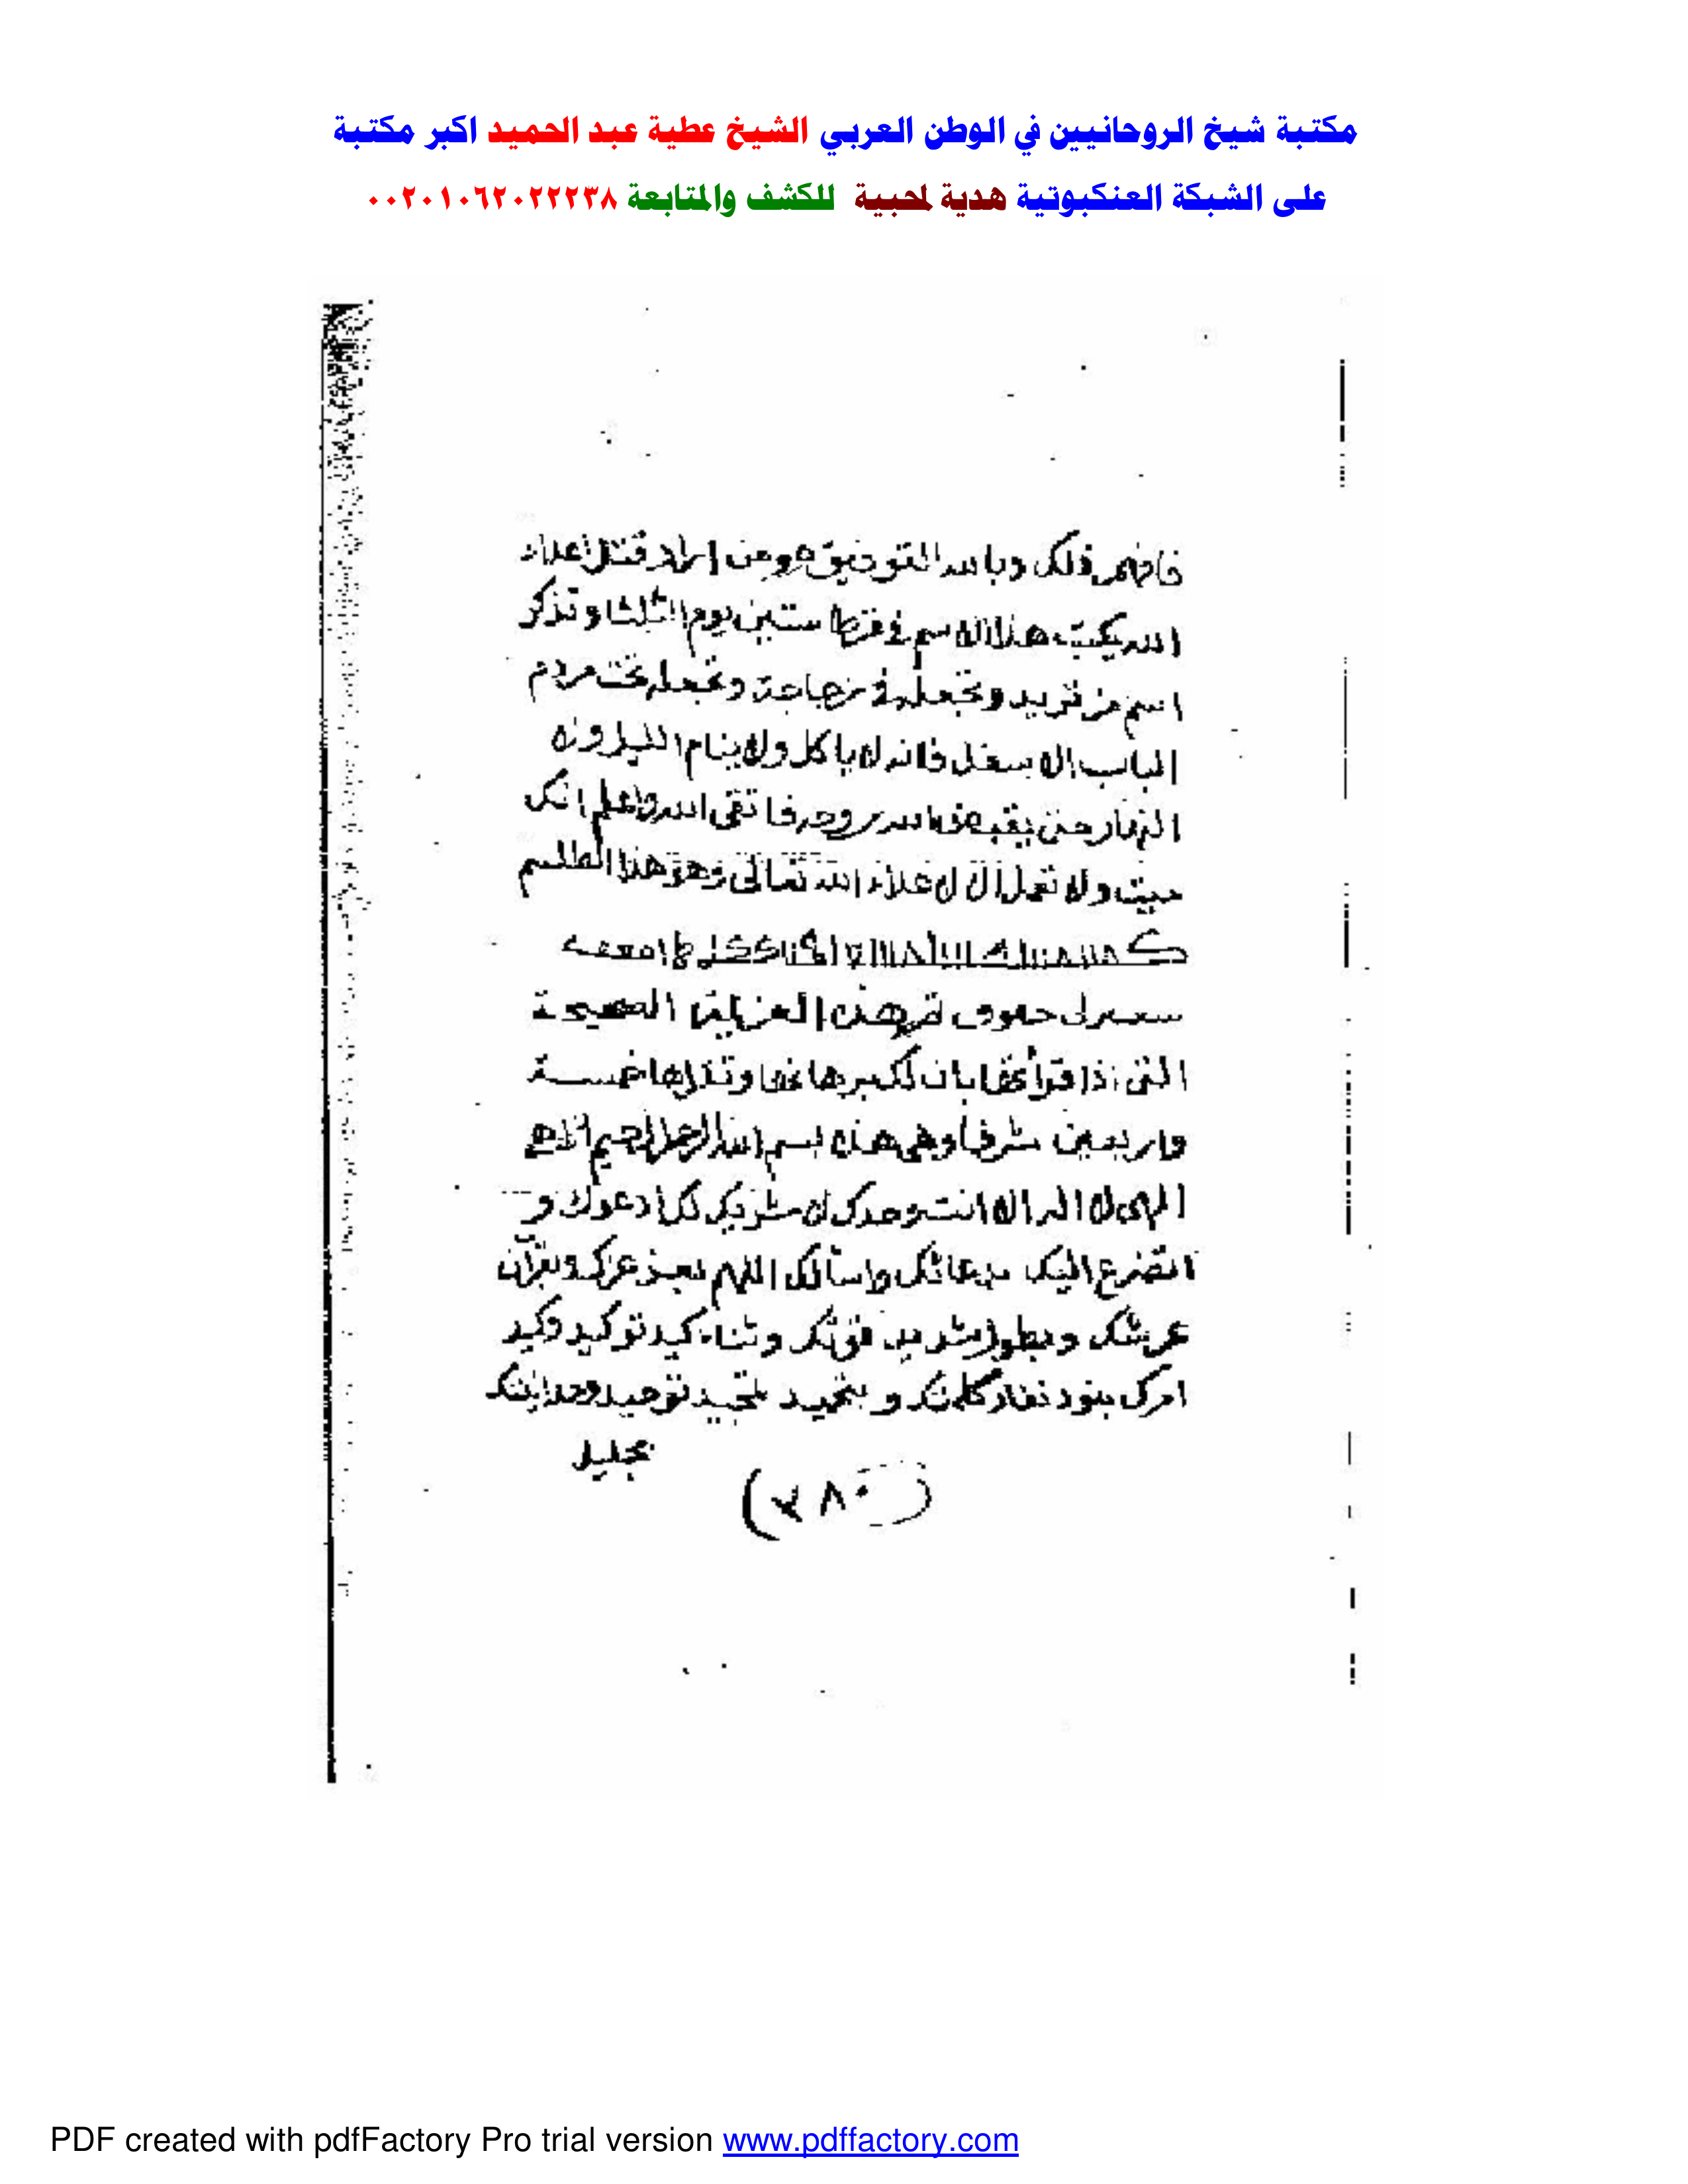 مكتبة شيخ الروحانيين في الوطن العربي الشيخ عطية عبد الحميد اكبر مكتبة
على الشبكة العنكبوتية هدية لمحبية للكشف والمتابعة ٠٠٢٠١٠٦٢٠٢٢٢٣٨
فافهم ذلك وبالله التوفيق ومن اراد قتل اعداء
الله يكتب هذا الاسم في قرطاستين يوم الثلثا وتذكر
اسم من تريد وتجعله في زجاجة وتجعله تحت مردم
الباب الاسفل فانه لا ياكل ولا ينام الليل ولا
النهار حتى يقبض الله روحه فاتقى الله واعلم انك
ميت ولا تعمل الا لاعداء الله تعالى وهو هذا الطلسم
بهذه العزيمة الصحيحة
التى اذا قرأ وتقراها خمسة
واربعين وهي هذه بسم الله الرحمن الرحيم
الهى لا اله الا انت وحدك لا شريك لك ادعوك و
اتضرع اليك واسألك اللهم بعز عزك
عرشك قوتك توكيد وكيد
امرك بنود توحيد وحدانيتك
بجليل
(٢٨٠)
PDF created with pdfFactory Pro trial version www.pdffactory.com